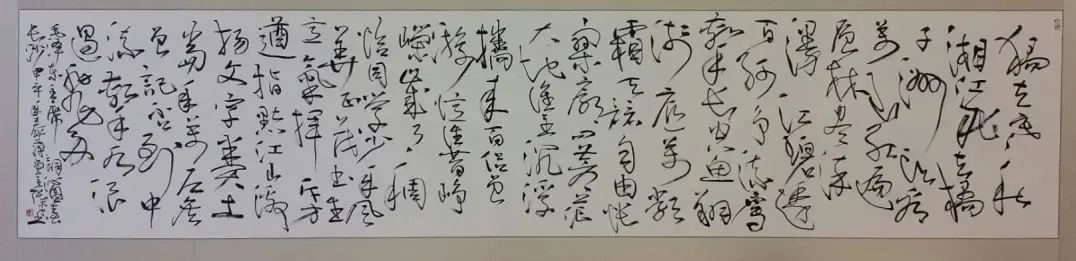 独立寒秋
湘江北去橘
子洲头看
万山红遍
层林尽染
漫江碧透
百舸争流鹰
击长空鱼翔
浅底万类
霜天竞自由怅
寥廓问苍茫
大地谁主沉浮
携来百侣曾
游忆往昔峥
嵘岁月稠
恰同学少年风
华正茂书生
意气挥斥方
遒指点江山激
扬文字粪土
当年万户侯
曾记否到中
流击水浪
遏飞舟
毛泽东主席词沁园春
长沙甲午